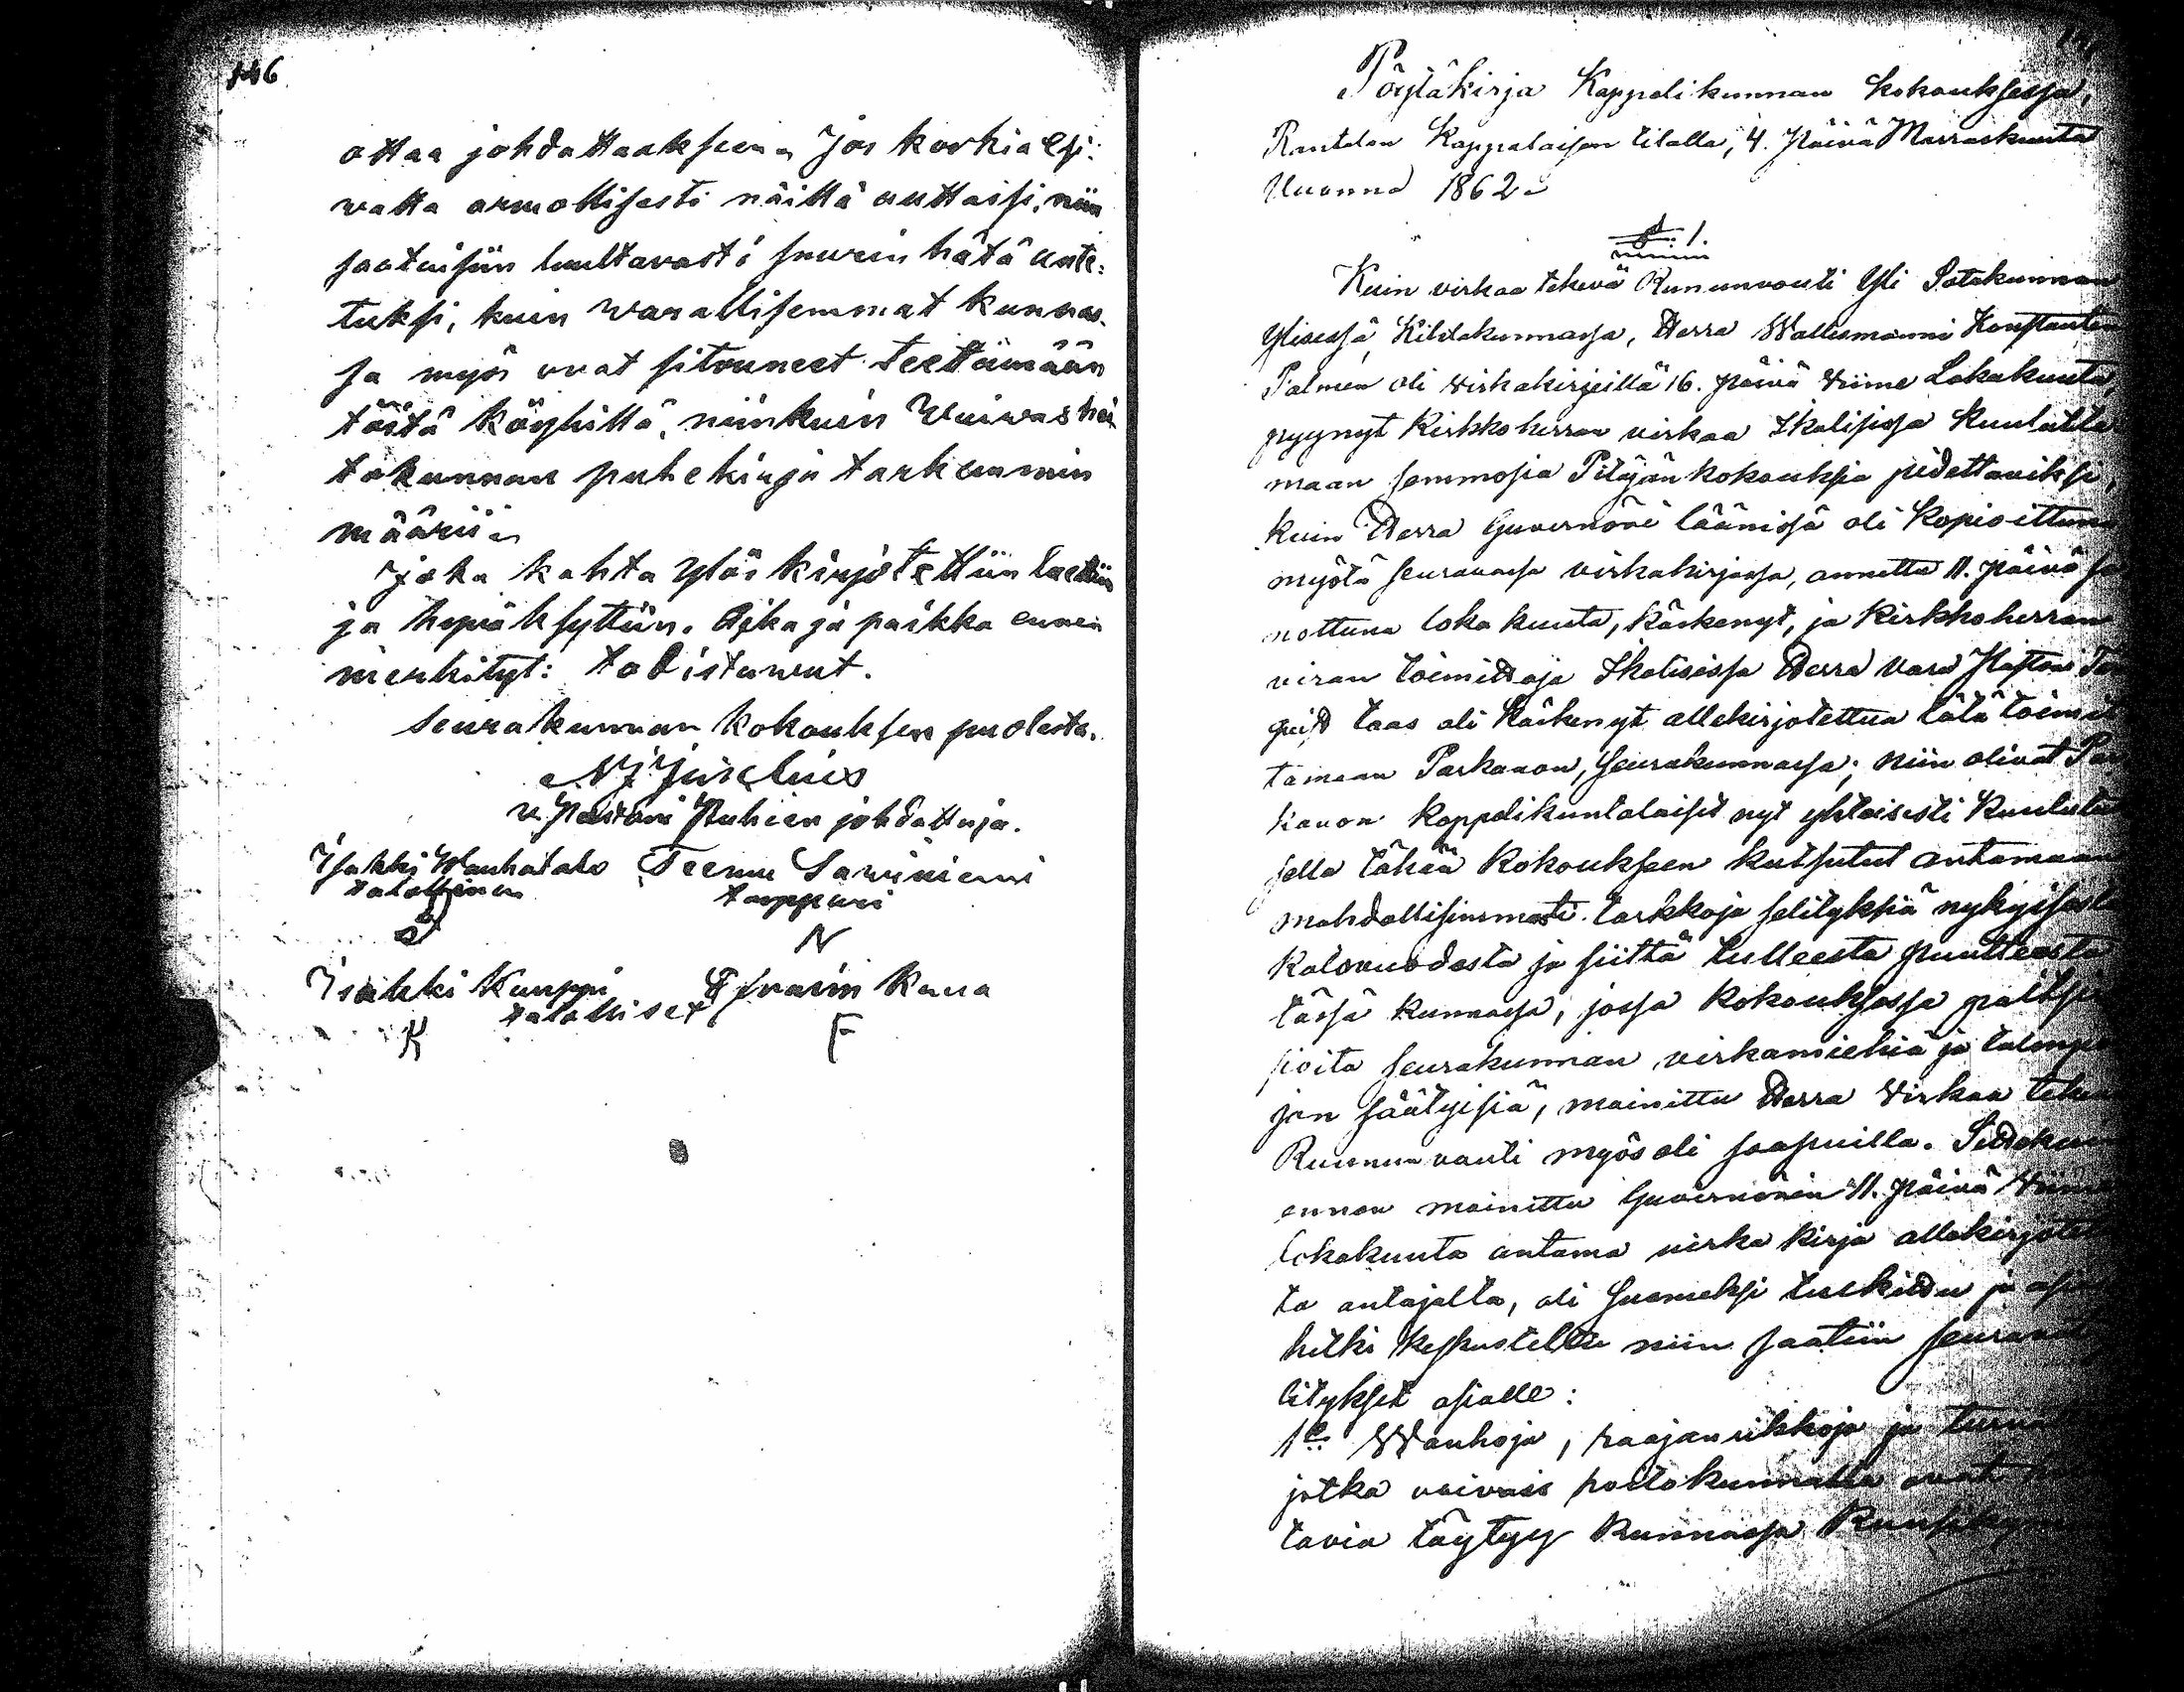 146
ottaa johdattaaksensa Jos korkia Esi:
watta armollisesti näittä auttaisi, niin
saataisiin luultavasti suurin hätä aute:
tuksi, kuin warallisemmat kunnas
sa myös ovat sitouneet teettämään
töitä köyhillä, niinkuin Waiwashoi
tokunnan puhekirja tarkemmin
määrii.
Joka kohta ylöskirjotettiin luettiin
ja hyväksyttiin. Aika ja paikka ennen
merkityt: todistawat.
Seurakunnan kokouksen puolesta.
v. Pastori Puhien johdattaja.
Isakki Wanhatalo Teemu Sawiniemi
talollinen torppari
N
Isakki Kuuppi Efraim Kaua
talolliset
K F
Pöytäkirja Kappelikunnan kokouksessa,
Rantalan Kappalaisen tilalla, 4. päivä Marraskuuta
Vuonna 1862.
§. 1.
Kuin virkaa tekevä Ruununvouti Yli Satakunnan
Ylisessä Kihlakunnassa, Herra Wallesmanni Konstantin
Palmen oli virkakirjeillä 16. päivä viime Lokakuuta,
pyynyt Kirkkoherran virkaa Ikalisissa kuulutta
maan semmosia Pitäjänkokouksia pidettäviksi,
kuin Herra Guvernööri läänissä oli kopioittuna
myötä seuraavassa virkakirjassa, annettu 11. päivä sa
nottuna lokakuuta, käskenyt, ja Kirkkoherran
viran toimittaja Ikalisissa Herra vara Pastori
taas oli käskenyt allekirjotettua tätä toimit
tamaan Parkanon, seurakunnassa; niin olivat Par
kanon kappelikuntalaiset nyt yhteisesti kuulutu
sella tähän kokoukseen kutsutut antamaan
mahdollisimmasti tarkkoja selityksiä nykyisestä
katovuodesta ja siittä tulleesta puutteesta
tässä kunnassa, jossa kokouksessa paitsi
sioita seurakunnan virkamiehiä ja talonpo
jan säätyisiä, mainittu Herra virkaa teke
Ruununvouti myös oli saapuilla. Sittekuin
ennen mainittu Guvernöörin 11. päivä viime
lokakuuta antama virka kirja allekirjotet
ta antajalta, oli Suomeksi tulkittu ja asia
hetki keskusteltu niin saatiin seuraavat
litykset asialle:
1o Wanhoja, raajanrikkoja ja
jotka vaivais hoitokunnalta ovat
tavia täytyy kunnassa